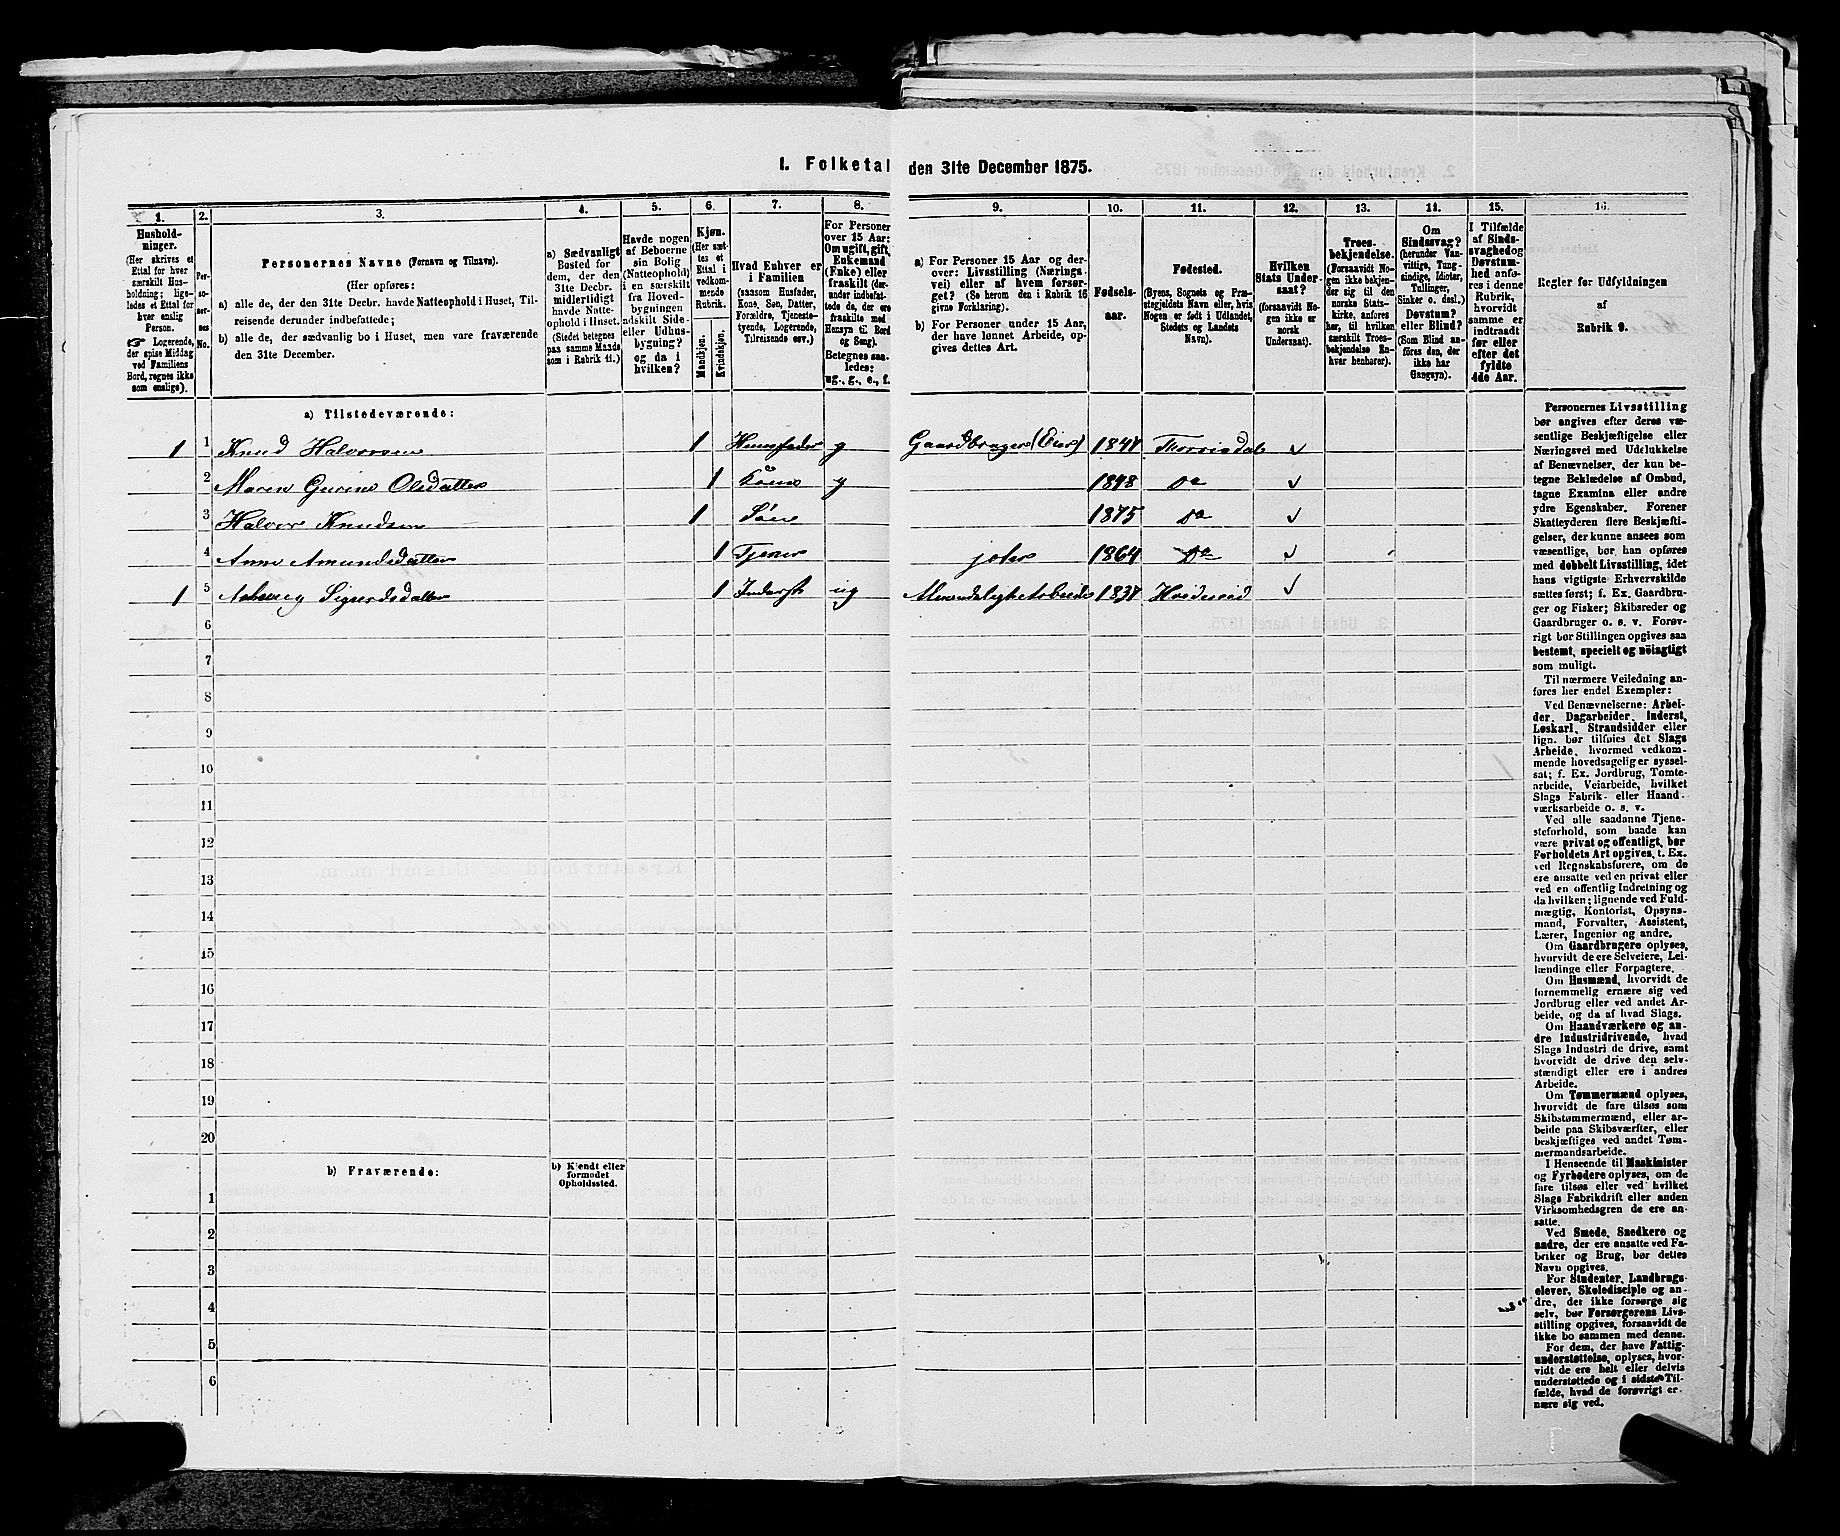 1. Folketal den 31te December 1875.
1. 2. 3. 4. 5. 6. 7. 8. 9. 10. 11. 12. 13. 14. 15. 16.
Hushold-
ninger.
(Her skrives et
Ettal for hver
særskilt Hus-
holdning; lige-
ledes et Ettal for
hver enslig
Person.
☞ Logerende,
der spise Middag
ved Familiens
Bord, regnes ikke
som enslige).
Per-
so-
ner-
nes
No.
Personernes Navne (Fornavn og Tilnavn).
(Her opføres:
a) alle de, der den 31te Decbr. havde Natteophold i Huset, Til-
reisende derunder indbefattede;
b) alle de, der sædvanlig bo i Huset, men vare fraværende
den 31te December.
a) Sædvanligt
Bosted for
dem, der den
31te Decbr.
midlertidigt
havde Natte-
ophold i Huset.
(Stedet betegnes
paa samme Maade
som i Rubrik 11.)
Havde nogen
af Beboerne
sin Bolig
(Natteophold)
i en særskilt
fra Hoved-
bygningen
adskilt Side-
eller Udhus-
bygning?
og da i
hvilken?
Kjøn.
(Her sæt-
tes et
Ettal i
vedkom-
mende
Rubrik.
Mandkjøn.
Kvindekjøn.
Hvad Enhver er
i Familien
(saasom Husfader,
Kone, Søn, Datter,
Forældre, Tjeneste-
tyende, Logerende,
Tilreisende osv.)
For Personer
over 15 Aar:
Om ugift, gift,
Enkemand
(Enke) eller
fraskilt (der-
under indbefat-
tede de, der ere
fraskilte med
Hensyn til Bord
og Seng).
Betegnes saa-
ledes:
ug., g., e., f.
a) For Personer 15 Aar og der-
over: Livsstilling (Nærings-
vei) eller af hvem forsør-
get? (Se herom den i Rubrik 16
givne Forklaring).
b) For Personer under 15 Aar,
der have lønnet Arbeide, op-
gives dettes Art.
Fødsels-
aar.
Fødested.
(Byens, Sognets og Præ-
stegjeldets Navn eller, hvis
Nogen er født i Udlandet,
Stedets og Landets
Navn).
Hvilken
Stats Under-
saat?
(forsaavidt No-
gen ikke er
norsk
Undersaat).
Troes-
bekjendelse.
(Forsaavidt No-
gen ikke bekjen-
der sig til den
norske Stats-
kirke, anføres
her, til hvilken
særskilt Troes-
bekjendelse En-
hver henhører).
Om
Sindssvag?
(herunder Van-
vittige, Tung-
sindige, Idioter,
Tullinger,
Sinker o. desl.)
Døvstum?
eller Blind?
(Som Blind an-
føres den, der
ikke har
Gangsyn).
I Tilfælde
af Sinds-
svaghed og
Døvstum-
hed anfø-
res i denne
Rubrik,
hvorvidt
samme er
indtraadt
før eller
efter det
fyldte
4de Aar.
Regler for Udfyldningen
af
Rubrik 9.
a) Tilstedeværende:
1 1 Knud Halvorsen 1 Huusfader g Gaardbruger (Eier) 1847 Thorrisdal v
2 Maren Gurine Olsdatter 1 Kone g 1848 Do v
3 Halvor Knudsen 1 Søn 1875 Do v
4 Anne Amundsdatter 1 Tjener 1864 Do v
1 5 Sigurdsdatter 1 Inderst ug Almindeligt Arbeide 1837 Hvideseid v
6
7
8
9
10
11
12
13
14
15
16
17
18
19
20
b) Fraværende: b) Kjendt eller
formodet
Opholdssted.
1
2
3
4
5
6
Personernes Livsstilling
bør angives efter deres væ-
sentlige Beskjæftigelse eller
Næringsvei med Udelukkelse
af Benævnelser, der kun be-
tegne Beklædelse af Ombud,
tagne Examina eller andre
ydre Egenskaber. Forener
Skatteyderen flere Beskjæfti-
gelser, der kunne ansees som
væsentlige, bør han opføres
med dobbelt Livsstilling, idet
hans vigtigste Erhvervskilde
sættes først; f. Ex. Gaardbru-
ger og Fisker; Skibsreder og
Gaardbruger o. s. v. Forøv-
rigt bør Stillingen opgives saa
bestemt, specielt og nöiagtigt
som muligt.
Til nærmere Veiledning an-
føres her endel Exempler:
Ved Benævnelserne: Arbei-
der, Dagarbeider, Inderst,
Løskarl, Strandsidder eller
lign. bør tilføies det Slags
Arbeide, hvormed vedkom-
mende hovedsagelig er syssel-
sat; f. Ex. Jordbrug, Tomte-
arbeide, Veiarbeide, hvilket
Slags Fabrik- eller Haand-
værksarbeide o. s. v.
Ved alle saadanne Tjene-
steforhold, som baade kan
være privat og offentligt, bør
Forholdets Art opgives, t. Ex.
ved Regnskabsførere, om de
ere ansatte ved en privat eller
ved en offentlig Indretning og
da hvilken; lignende ved Fuld-
mægtig, Kontorist, Opsyns-
mand, Forvalter, Assistent,
Lærer, Ingeniør og andre.
Om Gaardbrugere oplyses,
hvorvidt de ere Selveiere, Lei-
lændinge eller Forpagtere.
Om Husmænd, hvorvidt de
fornemmelig ernære sig ved
Jordbrug eller ved andet Ar-
beide, og da af hvad Slags.
Om Haandværkere og an-
dre Industridrivende, hvad
Slags Industri de drive, samt
hvorvidt de drive den selv-
stændigt eller ere i andres
Arbeide.
Om Tømmermænd oplyses,
hvorvidt de fare tilsøs som
Skibstømmermænd, eller ar-
beide paa Skibsværfter, eller
beskjæftiges ved andet Tøm-
mermandsarbeide.
I Henseende til Maskinister
og Fyrbødere oplyses, om de
fare tilsøs eller ved hvilket
Slags Fabrikdrift eller anden
Virksomhedsgren de ere an-
satte.
Ved Smede, Snedkere og
andre, der ere ansatte ved Fa-
briker og Brug, bør dettes
Navn opgives.
For Studenter, Landbrugs-
elever, Skoledisciple og an-
dre, der ikke forsørge sig
selv, bør Forsørgerens Livs-
stilling opgives, forsaavidt de
ikke bo sammen med denne.
For dem, der have Fattig-
understøttelse, oplyses, hvor-
vidt de ere helt eller delvis
understøttede og i sidste Til-
fælde, hvad de forøvrigt er-
nære sig ved.